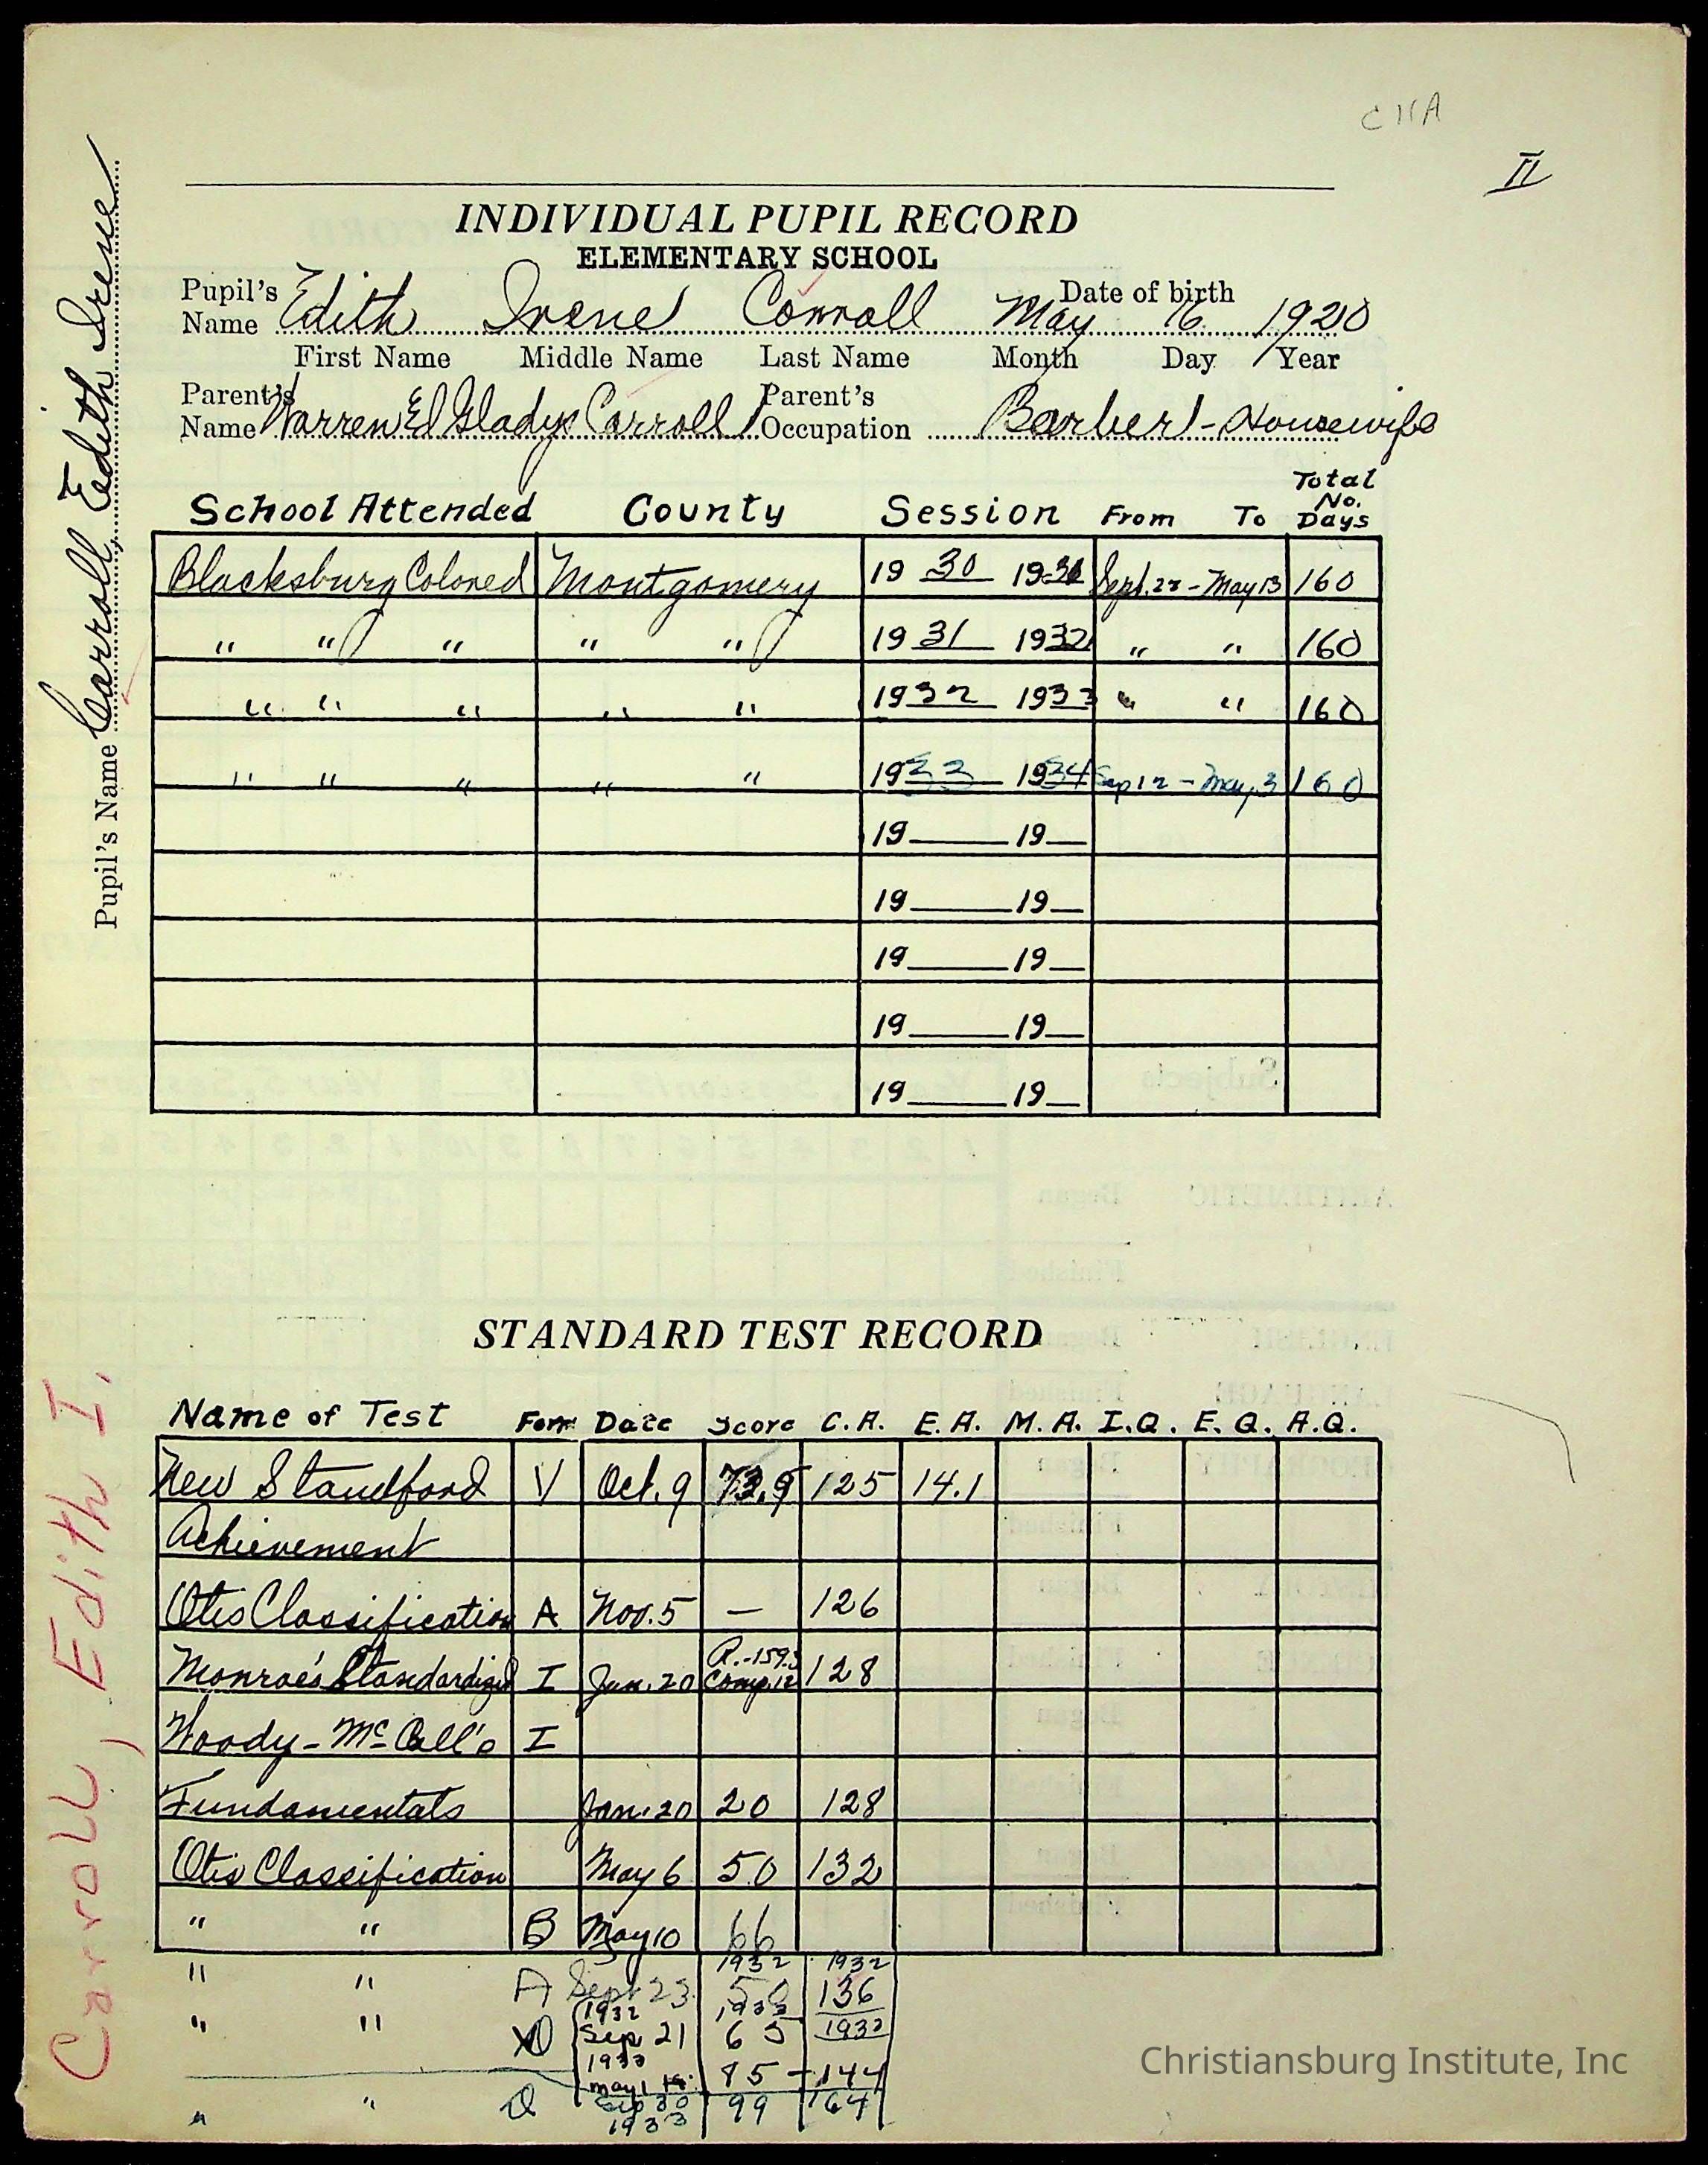 CIIA
II
INDIVIDUAL PUPIL RECORD
ELEMENTARY SCHOOL
Pupil's Name Edith Irene Carroll Date of birth May 16 1920
First Name Middle Name Last Name Month Day Year
Parent's Name Warren El Gladys Carroll Parent's Occupation Barber - Housewife
Pupil's Name Carroll, Edith Irene
School Attended County Session From To Total No. Days
Blacksburg Colored Montgomery 19 30 19 Sept. - May 13 160
" " " " " 19 31 1932 " " 160
" " " " " 1932 1933 " " 160
" " " " " 1933 1934 Sep 12 - May 3 160
19 19
19 19
19 19
19 19
19 19
STANDARD TEST RECORD
Name of Test Form Date Score C.A. E.A. M.A. I.Q. E.Q. A.Q.
New Standford V Oct. 9 73.9 125 14.1
Achievement
Otis Classification A Nov. 5 — 126
Monroe's Standardized I Jan. 20 R.-159.5 Comp. 12 128
Woody-McCall's I
Fundamentals Jan. 20 20 128
Otis Classification May 6 50 132
" " B May 10 66
" " A Sept 23 1932 1932 50 1932 136
" " Sep 21 1933 65 1932
may 1 85 - 144
" " Sep 30 1933 99 164
Carroll, Edith I.
Christiansburg Institute, Inc